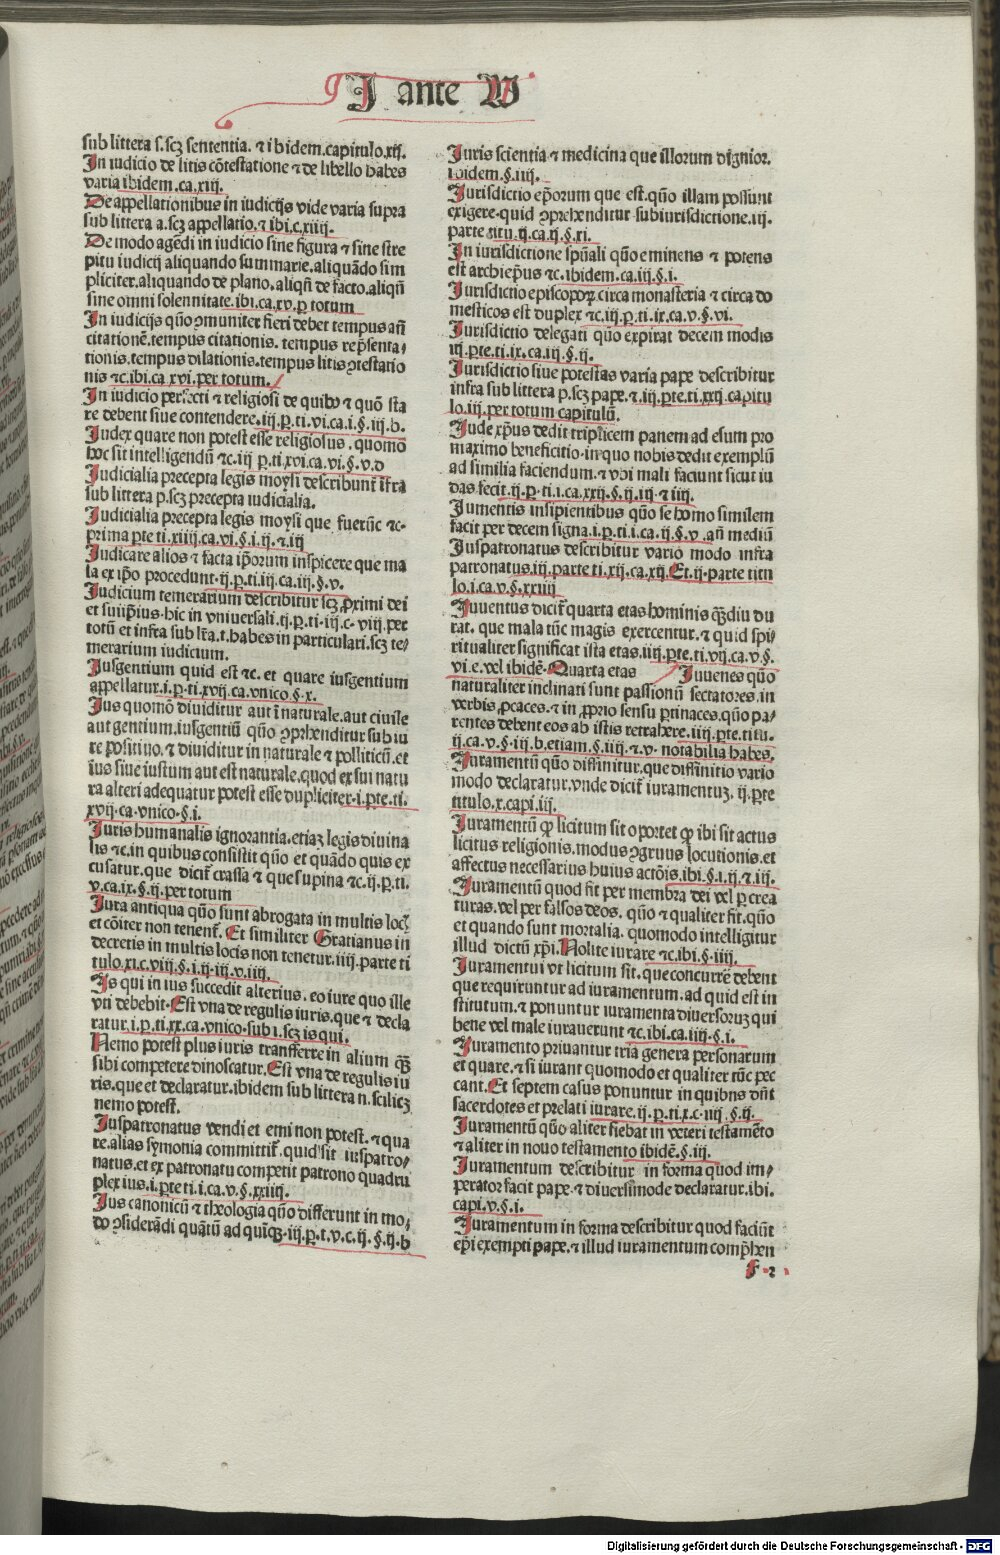 J ante W
sub littera s.scʒ sententia. ⁊ ibidem.capitulo.xij.
In iudicio de litis cōtestatione ⁊ de libello habes
varia ibidem.ca.xiij.
De appellationibus in iudicijs vide varia supra
sub littera a.scʒ appellatio.⁊ ibi.c.xiiij.
De modo agēdi in iudicio sine figura ⁊ sine stre
pitu iudicij aliquando summarie.aliquādo sim
pliciter.aliquando de plano.aliqñ de facto.aliqñ
sine omni solennitate.ibi.ca.xv.ꝑ totum
In iudicijs quō ꝯmuniter fieri debet tempus añ
citationē.tempus citationis. tempus rep̄senta/
tionis.tempus dilationis.tempus litis ꝯtestatio
nis ⁊c.ibi.ca xvi.per totum.
In iudicio perfecti ⁊ religiosi de quibꝰ ⁊ quō sta
re debent siue contendere.iij.p.ti.vi.ca.i.§.iij.b.
Judex quare non potest esse religiosus. quomo
hoc sit intelligendū ⁊c.iij p.ti.xvi.ca.vi.§.v.d
Judicialia precepta legis moysi describunt̄ īfra
sub littera p.scʒ precepta iudicialia.
Judicialia precepta legis moysi que fuerūt ⁊c.
prima ꝑte ti.xiiij.ca.vi.§.i.ij.⁊.iij
Judicare alios ⁊ facta ip̄orum inspicere que ma
la ex ip̄o procedunt.ij.p.ti.iij.ca.iij.§.v.
Judicium temerarium describitur scʒ ꝓximi dei
et suiip̄ius.hic in vniuersali.ij.p.ti.iij.c. viij.per
totū et infra sub lr̄a.t.habes in particulari.scʒ te/
merarium iudicium.
Jusgentium quid est ⁊c. et quare iusgentium
appellatur.i.p.ti.xvij.ca.vnico.§.x.
Jus quomō diuiditur aut ī naturale.aut ciuile
aut gentium.iusgentiū quō ꝯprehenditur sub iu
re positiuo.⁊ diuiditur in naturale ⁊ polliticū.et
ius siue iustum aut est naturale.quod ex sui natu
ra alteri adequatur potest esse dupliciter.i.ꝑte.ti.
xvij.ca.vnico.§.i.
Juris humanalis ignorantia.etiaʒ legis diuina
lis ⁊c.in quibus consistit quō et quādo quis ex
cusatur.que dicit̄ crassa ⁊ que supina ⁊c.ij.p.ti.
v.ca.ix.§.ij.per totum
Jura antiqua quō sunt abrogata in multis locꝭ
et cōiter non tenent̄. Et similiter Gratianus in
decretis in multis locis non tenetur.iij.parte ti
tulo.xi.c.viij.§.i.ij.iij.v.iiij.
Is qui in ius succedit alterius. eo iure quo ille
vti debebit.Est vna de regulis iuris.que ⁊ decla
ratur.i.p.ti.xx.ca.vnico.sub i.scʒ is qui.
Nemo potest plus iuris transfferre in alium q̄ꝫ
sibi competere dinoscatur.Est vna de regulis iu
ris.que et declaratur.ibidem sub littera n.scilicʒ
nemo potest.
Juspatronatus vendi et emi non potest. ⁊ qua
re.alias symonia committit̄.quid sit iuspatro/
natus.et ex patronatu competit patrono quadru
plex ius.i.ꝑte ti.i.ca.v.§.xxiiij.
Jus canonicū ⁊ theologia quō differunt in mo/
do ꝯsiderādi quātū ad quīqꝫ.iij.p.t.v.c.ij.§.ij.b
Juris scientia ⁊ medicina que illorum dignior.
ibidem.§.iiij.
Jurisdictio ep̄orum que est.quō illam possunt
exigere.quid ꝯprehenditur sub iurisdictione.iij.
parte titu.ij.ca.ij.§.xi.
In iurisdictione spūali quō eminens ⁊ potens
est archiep̄us ⁊c.ibidem.ca.iij.§.i.
Jurisdictio episcopoꝝ circa monasteria ⁊ circa do
mesticos est duplex ⁊c.iij.p.ti.ix.ca.v.§.vi.
Jurisdictio delegati quō expirat decem modis
iij.ꝑte.ti.ix.ca.iij.§.ij.
Jurisdictio siue potestas varia pape describitur
infra sub littera p.scʒ pape.⁊.iij.ꝑte.ti.xxij.capitu
lo.iij.per totum capitulū.
Jude xp̄us dedit triplicem panem ad esum pro
maximo beneficitio.in quo nobis dedit exemplū
ad similia faciendum.⁊ vbi mali faciunt sicut iu
das fecit.ij.p.ti.i.ca.xxij.§.ij.iij.⁊ iiij.
Jumentis insipientibus quō se homo similem
facit per decem signa.i.p.ti.i.ca.ij.§.v.añ mediū
Juspatronatus describitur vario modo infra
patronatus.iij.parte ti.xij.ca.xij.Et.ij.parte titu
lo.i.ca.v.§.xxiiij
Juuentus dicit̄ quarta etas hominis q̄ꝫdiu du
rat. que mala tūc magis exercentur.⁊ quid spi/
ritualiter significat ista etas.iiij.ꝑte.ti.vij.ca.v.§.
vi.e.vel ibidē.Quarta etas Juuenes quō
naturaliter inclinati sunt passionū sectatores.in
verbis ꝓcaces.⁊ in ꝓprio sensu ꝑtinaces.quō pa/
rentes debent eos ab istis retrahere.iiij.ꝑte.titu.
ij.ca.v.§.iij.b.etiam.§.iiij.⁊.v. notabilia habes.
Juramentū quō diffinitur.que diffinitio vario
modo declaratur.vnde dicit̄ iuramentuʒ. ij.ꝑte
titulo.x.capi.iij.
Juramentū ꝙ licitum sit oportet ꝙ ibi sit actus
licitus religionis.modus ꝯgruus locutionis.et
affectus necessarius huius actōis.ibi.§.i.ij.⁊.iij.
Juramentū quod fit per membra dei vel ꝑ crea
turas.vel per falsos deos. quō ⁊ qualiter fit.quō
et quando sunt mortalia. quomodo intelligitur
illud dictū xp̄i.Nolite iurare ⁊c.ibi.§.iiij.
Juramentui vt licitum sit.que concurrē debent
que requiruntur ad iuramentum.ad quid est in
stitutum.⁊ ponuntur iuramenta diuersoruʒ qui
bene vel male iurauerunt ⁊c.ibi.ca.iiij.§.i.
Juramento priuantur tria genera personarum
et quare.⁊ si iurant quomodo et qualiter tūc pec
cant.Et septem casus ponuntur in quibns dn̄t
sacerdotes et prelati iurare.ij.p.ti.x.c.iiij.§.ij.
Juramentū quō aliter fiebat in veteri testamēto
⁊ aliter in nouo testamento ibidē.§.iij.
Juramentum describitur in forma quod im/
perator facit pape.⁊ diuersimode declaratur.ibi.
capi.v.§.i.
Juramentum in forma describitur quod faciūt
ep̄i exempti pape.⁊ illud iuramentum comp̄hen
F 2
Digitalisierung gefördert durch die Deutsche Forschungsgemeinschaft - DFG